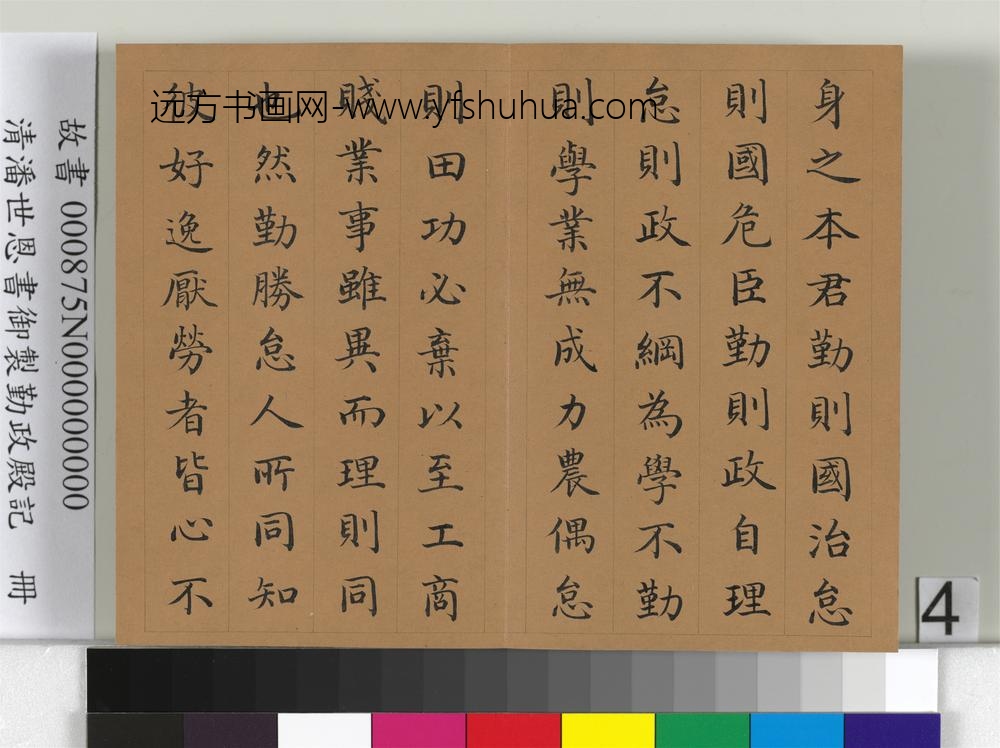 身之本君勤則國治怠
則國危臣勤則政自理
怠則政不綱為學不勤
則學業無成力農偶怠
則田功必棄以至工商
賤業事雖異而理則同
也然勤勝怠人所同知
彼好逸厭勞者皆心不
远方书画网-www.yfshuhua.com
故書 000875N000000000
清潘世恩書御製勤政殿記 冊
4